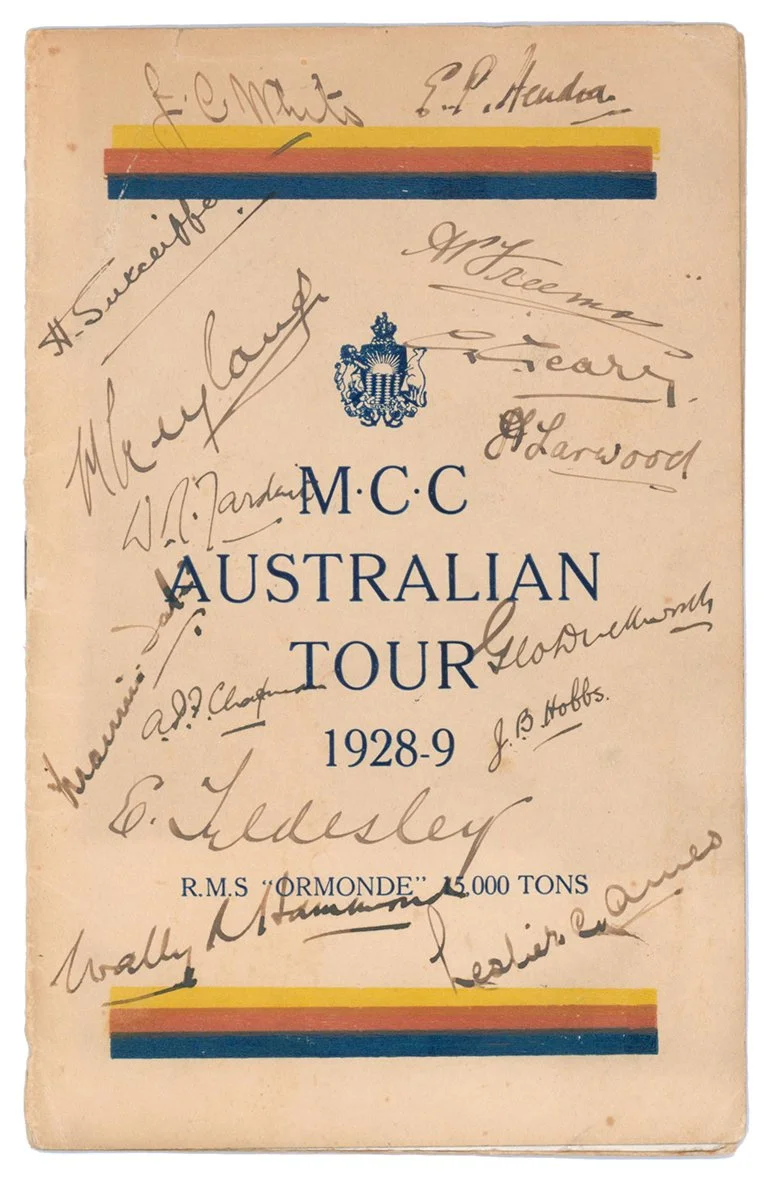 J. C. White
E. P. Hendren
H. Sutcliffe.
AP Freeman
M Leyland
G. Geary.
H Larwood
D. R. Jardine
M·C·C
AUSTRALIAN
Maurice Tate
TOUR
Geo Duckworth
A.P.F. Chapman
J. B. Hobbs.
1928-9
E. Tyldesley
R.M.S "ORMONDE" 15,000 TONS
Wally R Hammond
Leslie E. G. Ames